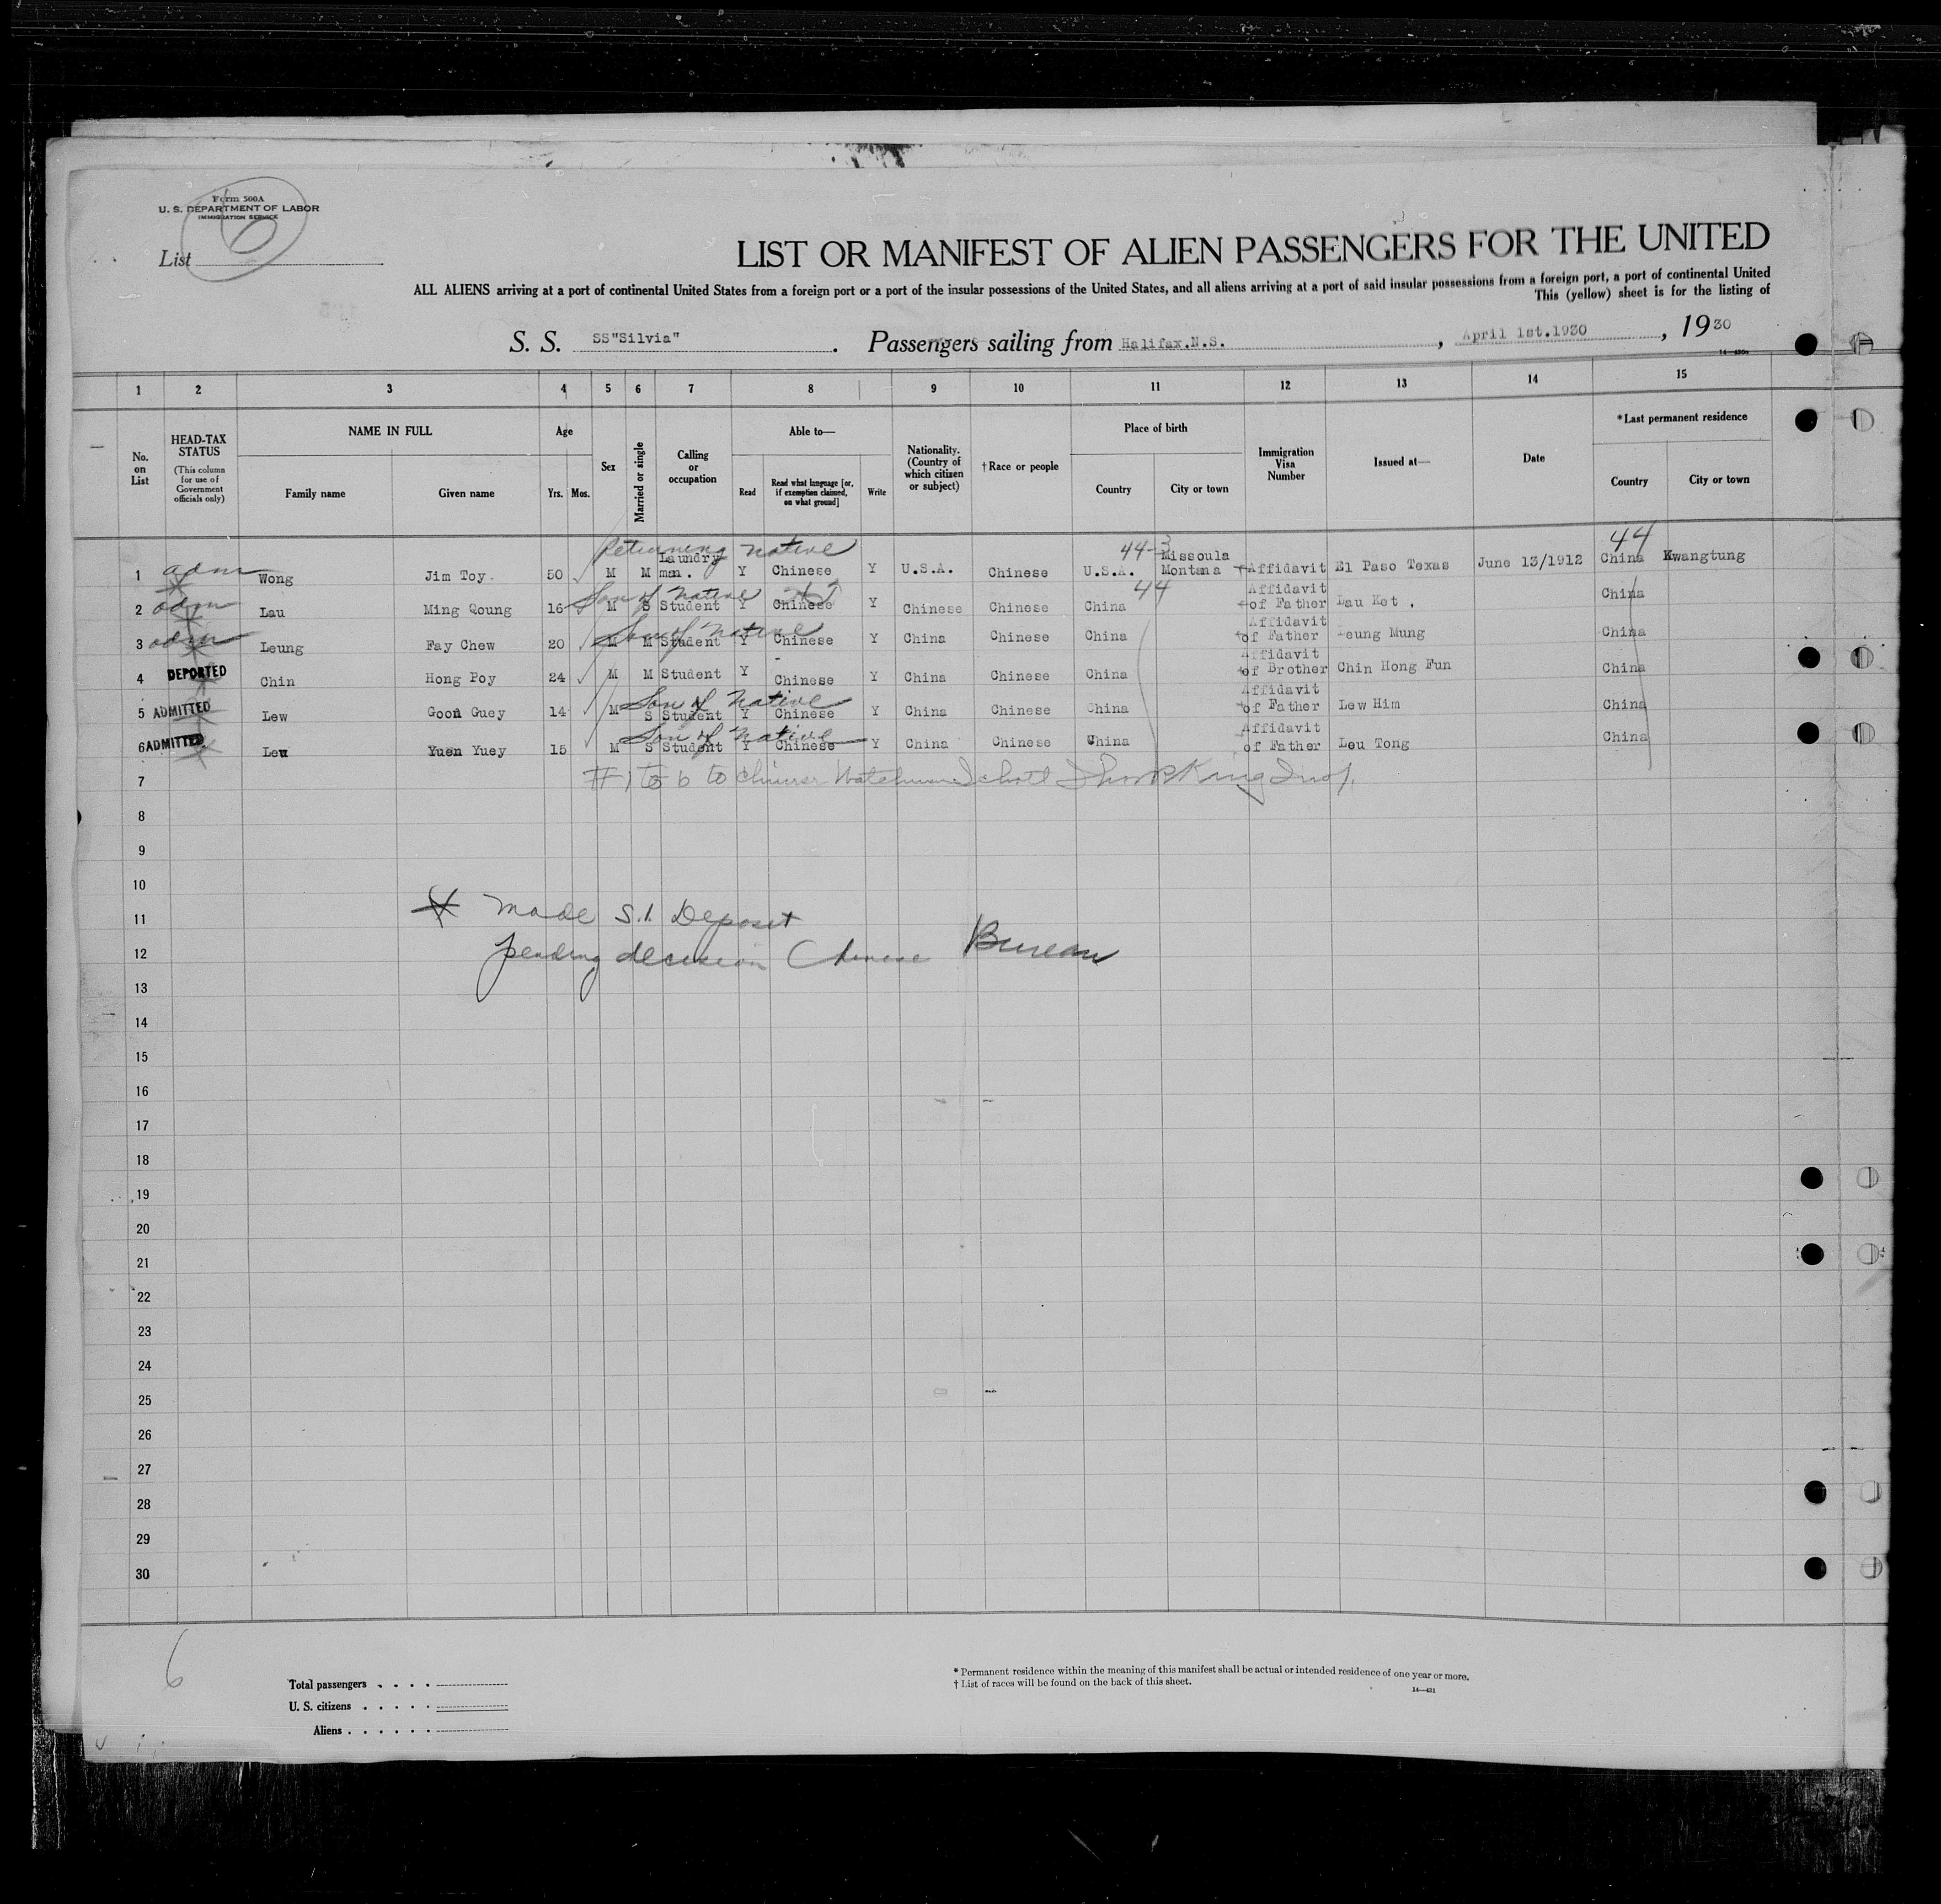 Form 500A
U. S. DEPARTMENT OF LABOR
IMMIGRATION SERVICE
6
List
LIST OR MANIFEST OF ALIEN PASSENGERS FOR THE UNITED
ALL ALIENS arriving at a port of continental United States from a foreign port or a port of the insular possessions of the United States, and all aliens arriving at a port of said insular possessions from a foreign port, a port of continental United
This (yellow) sheet is for the listing of
S. S. SS"Silvia". Passengers sailing from Halifax.N.S., April 1st.1930, 1930
1 2 3 4 5 6 7 8 9 10 11 12 13 14 15
No. on List
HEAD-TAX STATUS (This column for use of Government officials only)
NAME IN FULL
Family name Given name
Age
Yrs. Mos.
Sex
Married or single
Calling or occupation
Able to—
Read Read what language [or, if exemption claimed, on what ground] Write
Nationality. (Country of which citizen or subject)
†Race or people
Place of birth
Country City or town
Immigration Visa Number
Issued at—
Date
*Last permanent residence
Country City or town
Returning native 44-3 44
1 adm Wong Jim Toy. 50 M M Laundry man. Y Chinese Y U.S.A. Chinese U.S.A. Missoula Montana Affidavit El Paso Texas June 13/1912 China Kwangtung
Son of native 44
2 adm Lau Ming Qoung 16 M S Student Y Chinese Y Chinese Chinese China Affidavit of Father Lau Ket . China
Son of native
3 adm Leung Fay Chew 20 M M Student Y Chinese Y China Chinese China Affidavit of Father Leung Mung China
4 DEPORTED Chin Hong Poy 24 M M Student Y Chinese Y China Chinese China Affidavit of Brother Chin Hong Fun China
Son of native
5 ADMITTED Lew Goon Guey 14 M S Student Y Chinese Y China Chinese China Affidavit of Father Lew Him China
Son of native
6 ADMITTED Lew Yuen Yuey 15 M S Student Y Chinese Y China Chinese China Affidavit of Father Lou Tong China
7 #1 to 6 to Chinese
8
9
10
11 made S.I. Deposit
12 pending decision Chinese Bureau
13
14
15
16
17
18
19
20
21
22
23
24
25
26
27
28
29
30
6
Total passengers
U. S. citizens
Aliens
* Permanent residence within the meaning of this manifest shall be actual or intended residence of one year or more.
† List of races will be found on the back of this sheet.
14—431